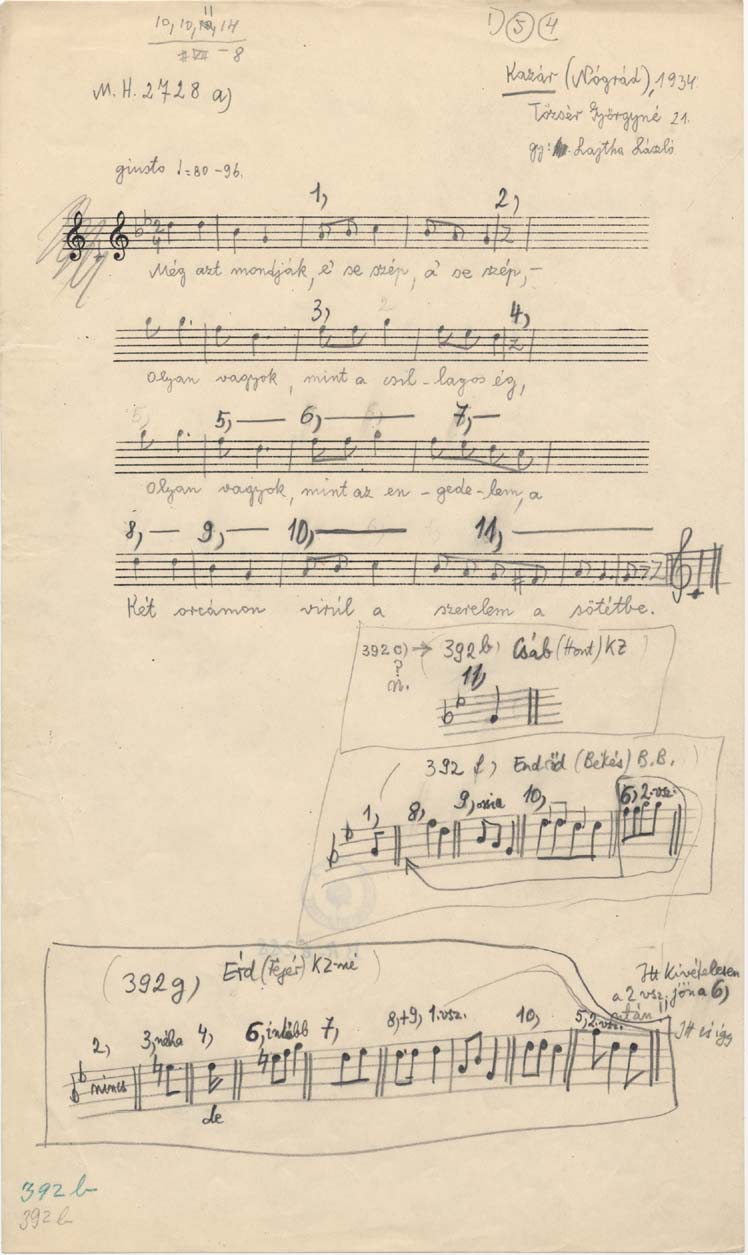 10, 10, 11, 14
VII - 8
1) 5 4
M. H. 2728 a)
Kazár (Nógrád), 1934
Tőzsér Györgyné 21.
gy: Lajtha László
giusto ♩=80-96.
1, 2,
Még azt mondják, e' se szép, a' se szép, -
3, 4,
Olyan vagyok, mint a csil-lagos ég,
5, 6, 7,
Olyan vagyok, mint az en-gede-lem, a
8, 9, 10, 11,
Két orcámon virúl a szerelem a sötétbe.
392 c) → 392 b) Csáb (Hont) KZ
?
n.
11,
392 f, Endrőd (Békés) B.B.
1, 8, 9, ossia 10, 6, 2. vsz.
392 g, Érd (Fejér) KZ-né
Itt Kivételesen
a 2 vsz. jön a 6,
után!!
Itt és így
2, 3, néha 4, 6, inkább 7, 8, +9, 1. vsz. 10, 5, 2. vsz.
nincs
de
392 b
392 b